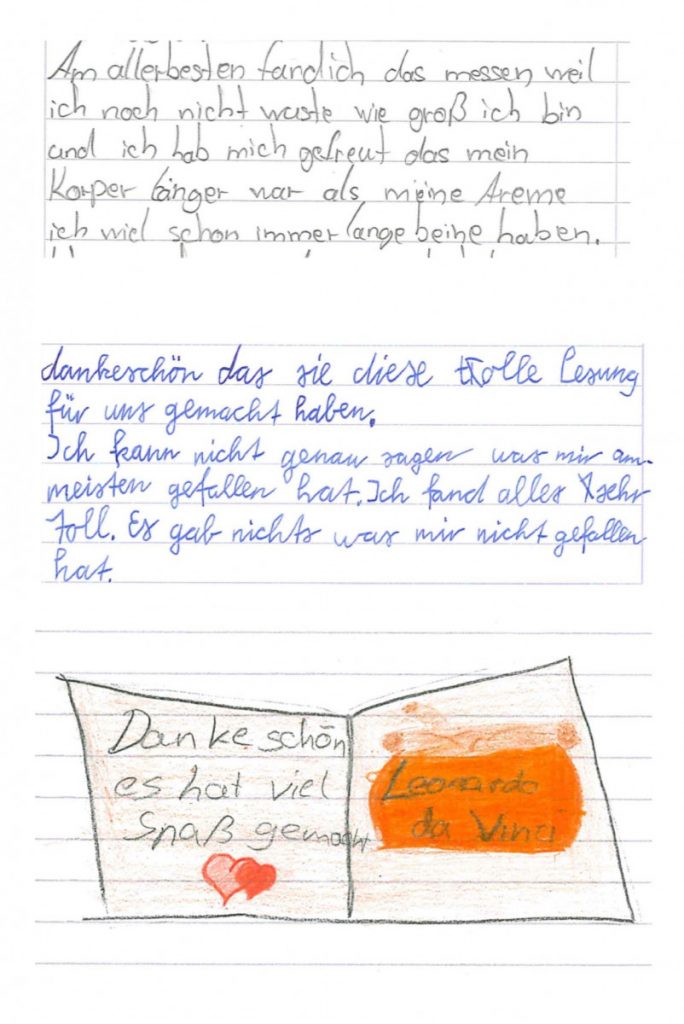 Am allerbesten fand ich das messen weil
ich noch nicht wuste wie groß ich bin
und ich hab mich gefreut das mein
Korper länger war als meine Areme
ich wiel schon immer lange beine haben.
dankeschön das sie diese tolle Lesung
für uns gemacht haben.
Ich kann nicht genau sagen was mir am
meisten gefallen hat. Ich fand alles sehr
toll. Es gab nichts was mir nicht gefallen
hat.
Danke schön
es hat viel
Spaß gemacht
Leonardo
da Vinci